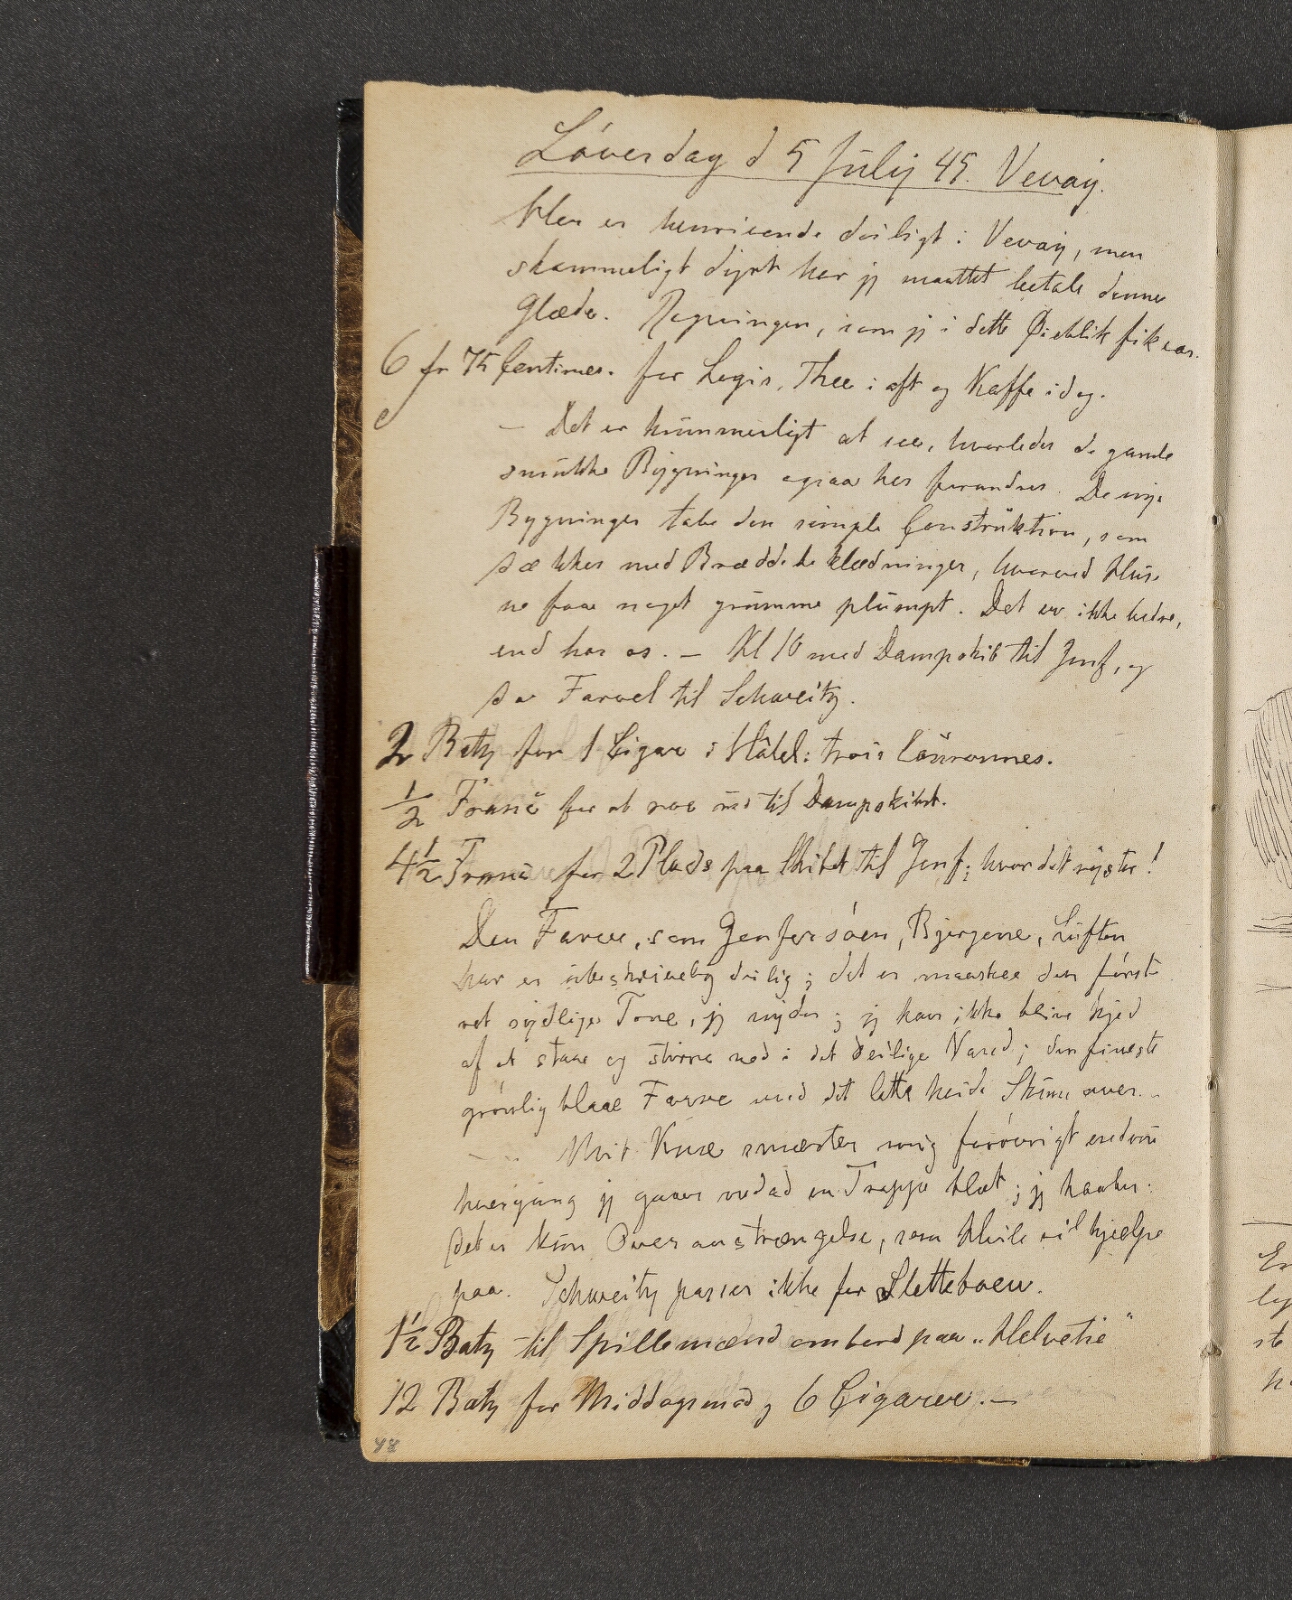 Löverdag d 5 Julÿ 45. Vevaÿ.
Her er henrivende deiligt i Vevaÿ, men
skammeligt dÿrt har jeg maattet betale denne
Glæde. Regningen, som jeg i dette Øieblik fik var
6 fr 75 Centimes. for Logis, Thee i aft og Kaffe idag.
— Det er kummerligt at see, hvorledes de gamle
smukke Bÿgninger ogsaa her forandres. De nÿe
Bygninger tabe den simple Construktion, som
dækkes med Bræddebeklædninger, hvorved Huse
ne faae noget grumme plumpt. Det er ikke bedre,
end hos os. — Kl 10 med Dampskib til Genf, og
da Farvel til Schweitz.
2 Batz for 1 Cigar i Hôtel: trois Couronnes.
1/2 Franc for at roe ud til Dampskibet.
4 1/2 Franc for 2 Plads paa Skibet til Genf; hvor det rÿster!
Den Farve, som Genfersöen, Bjergene, Luften
har er ubeskrivelig deilig; det er maaskee den förste
ret sÿdlige Tone, jeg nÿder; jeg kan ikke blive kjed
af at staae og stirre ned i det deilige Vand; den fineste
grönlig blaae Farve med det lette hvide Skum over. —
— Mit Knæ smerter mig forövrigt endnu
hvergang jeg gaaer nedad en Trappe blot; jeg haaber:
det er kun Overanstrængelse, som Hvile vil hjælpe
paa. Schweitz passer ikke for Sletteboen.
1 1/2 Batz til Spillemænd ombord paa „Helvetie"
12 Batz for Middagsmad og 6 Cigarer. —
48